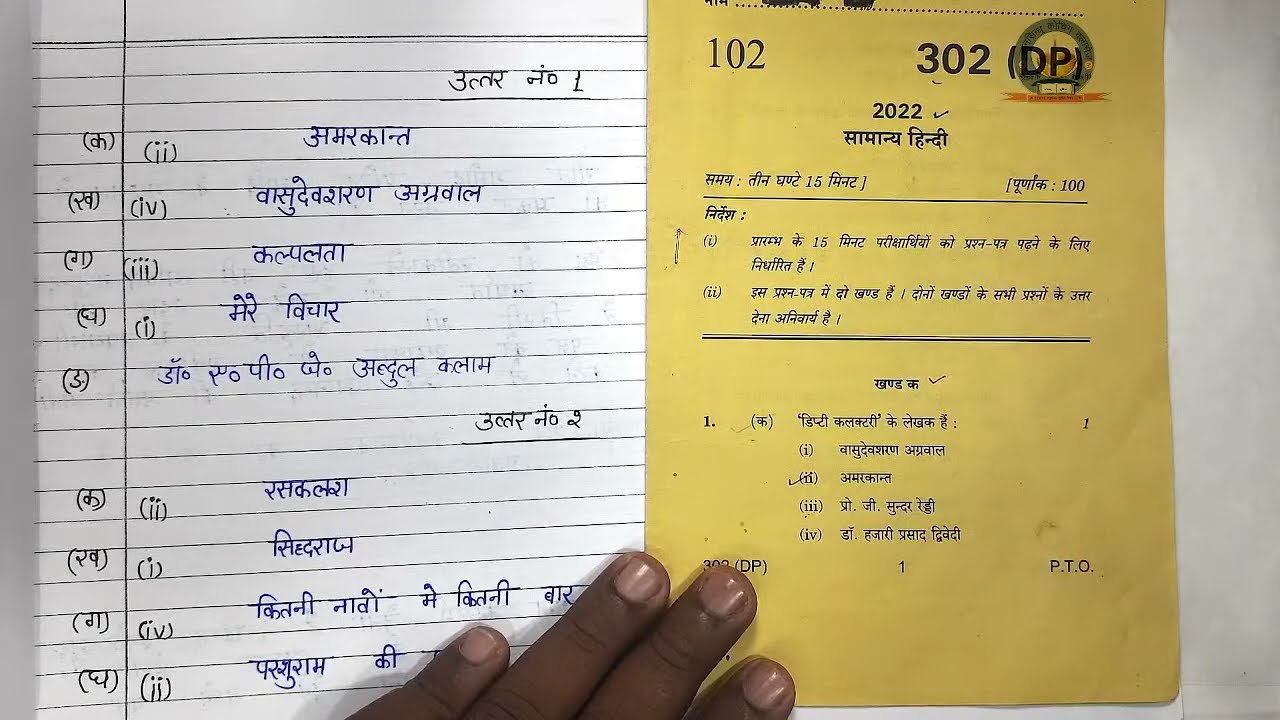 उत्तर नं० 1
(क) (ii) अमरकान्त
(ख) (iv) वासुदेवशरण अग्रवाल
(ग) (iii) कल्पलता
(घ) (i) मेरे विचार
(ङ) डॉ० ए० पी० जे० अब्दुल कलाम
उत्तर नं० २
(क) (ii) रसकलश
(ख) (i) सिद्दराज
(ग) (iv) कितनी नावों मे कितनी बार
(घ) (ii) परशुराम की
नाम
102 302 (DP)
2022
सामान्य हिन्दी
समय : तीन घण्टे 15 मिनट ] [पूर्णांक : 100
निर्देश :
(i) प्रारम्भ के 15 मिनट परीक्षार्थियों को प्रश्न-पत्र पढ़ने के लिए
निर्धारित हैं ।
(ii) इस प्रश्न-पत्र में दो खण्ड हैं । दोनों खण्डों के सभी प्रश्नों के उत्तर
देना अनिवार्य है ।
खण्ड क
1. (क) 'डिप्टी कलक्टरी' के लेखक हैं : 1
(i) वासुदेवशरण अग्रवाल
(ii) अमरकान्त
(iii) प्रो. जी. सुन्दर रेड्डी
(iv) डॉ. हजारी प्रसाद द्विवेदी
302 (DP) 1 P.T.O.